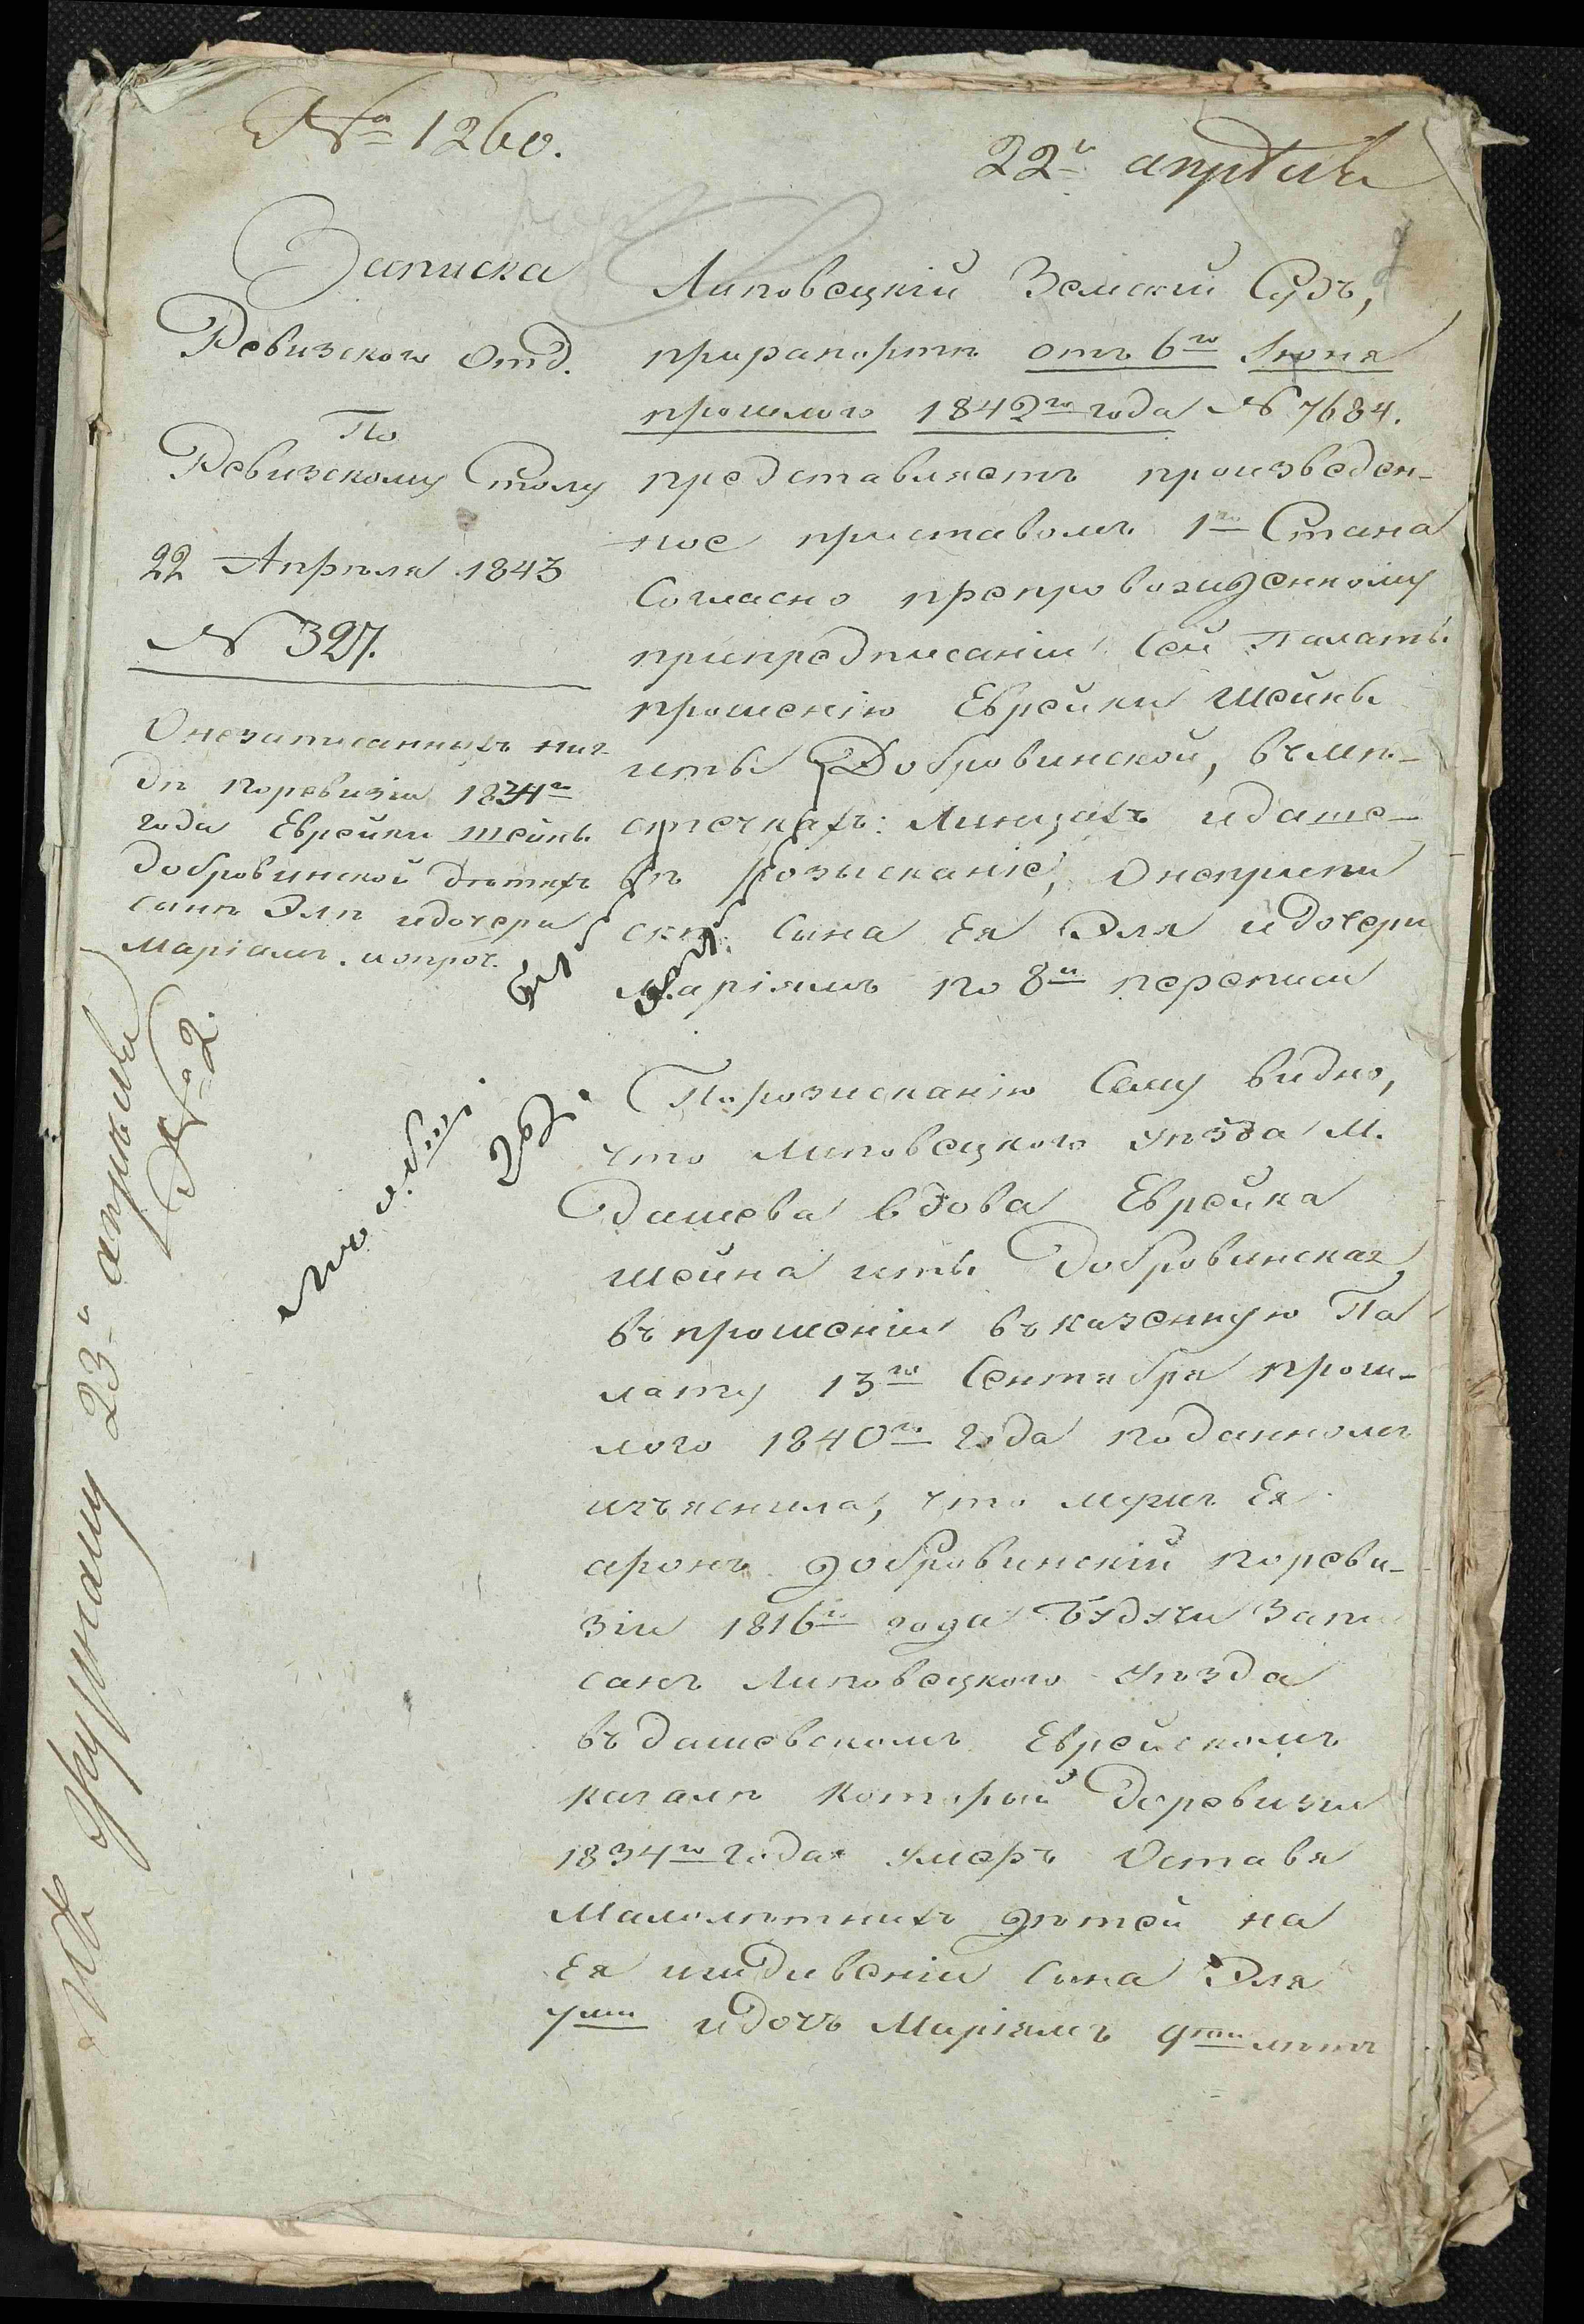 № 1260.
22го апрѣля
Записка
Ревизского Отд.
По
Ревизскому Столу
22 Апрѣля 1843
№ 327.
О незаписанныхъ ниг-
дѣ поревизіи 1834го
года Еврейки Шейны
Добровинской дѣтяхъ
сынѣ Элѣ идочери
Маріамъ. ипроч.
Липовецкій Земскій Судъ,
прирапортѣ отъ 6го Іюня
прошлого 1842го года № 7684.
представляетъ произведен-
ное приставомъ 1го Стана
Согласно препровожденному
припредписаніи Сей Палаты
прошенію Еврейки Шейны
Добровинской, вмѣ-
стечкахъ: Линцахъ идаше-
вѣ розысканіе, Онеприпи
скѣ Сына Ея Эля идочери
Маріямъ по 8й переписи
Порозисканію Сему видно,
что Липовецкого уѣзда М.
Дашева вдова Еврейка
Шейна Добровинская,
въ прошеніи въказенную Па
лату 13го Сентября прош-
лого 1840го года поданномъ
изъяснила, что мужъ Ея
аронъ добровинскій пореви-
зіи 1816го года будучи запи
санъ Липовецкого уѣзда
въдашевскомъ Еврейскомъ
кагалѣ который доревизіи
1834го года умеръ Оставя
Малолѣтнихъ дѣтей на
Ея иждивеніи Сына Эля
7ми идочь Маріямъ 9ти лѣтъ
23го апрѣля
№ 2.